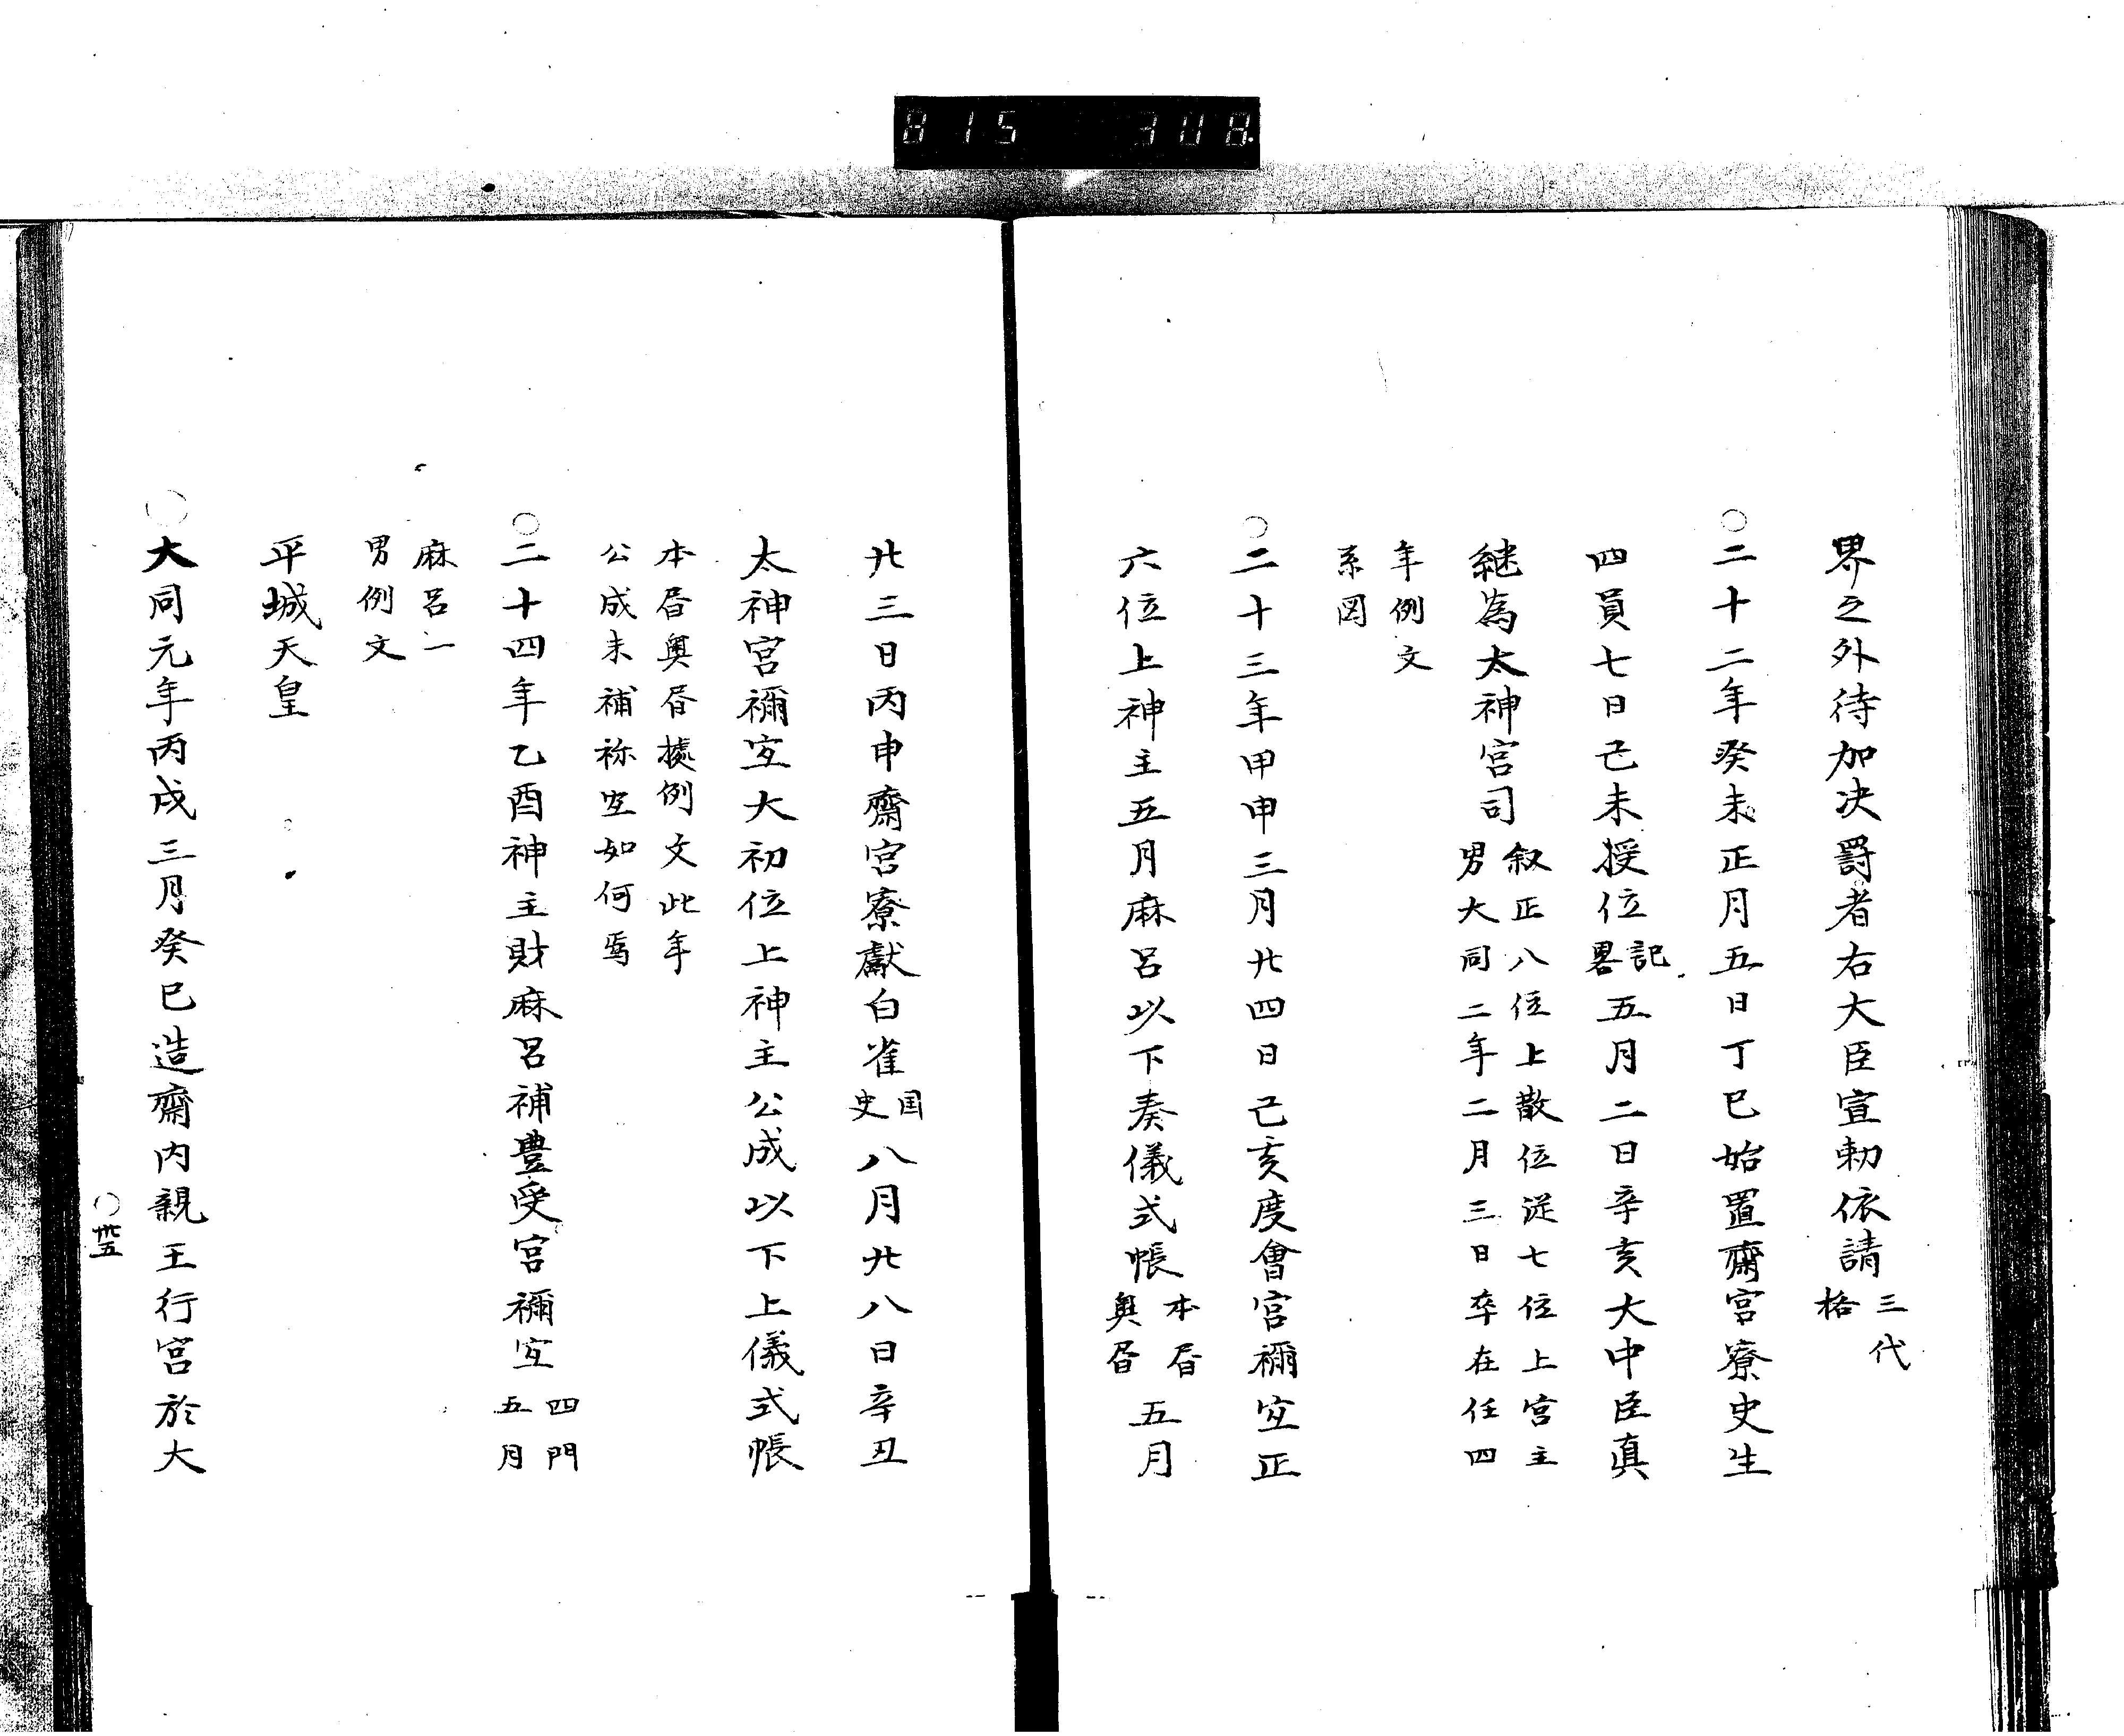 815 308.
界之外待加决罸者右大臣宣勅依請三代格
○二十二年癸未正月五日丁巳始置齋宮寮史生
四員七日己未授位記畧五月二日辛亥大中臣真
継為太神宮司叙正八位上散位従七位上宮主男大同二年二月三日卒在任四
年例文系図
○二十三年甲申三月廿四日己亥度會宮禰宜正
六位上神主五月麻呂以下奏儀式帳本㫺奥㫺五月
廿三日丙申齋宮寮獻白雀国史八月廿八日辛丑
太神宮禰宜大初位上神主公成以下上儀式帳
本㫺奥㫺據例文此年
公成未補祢宜如何焉
○二十四年乙酉神主財麻呂補豊受宮禰宜四門五月
麻呂一男例文
平城天皇
○大同元年丙戌三月癸巳造齋内親王行宮於大
○卅五